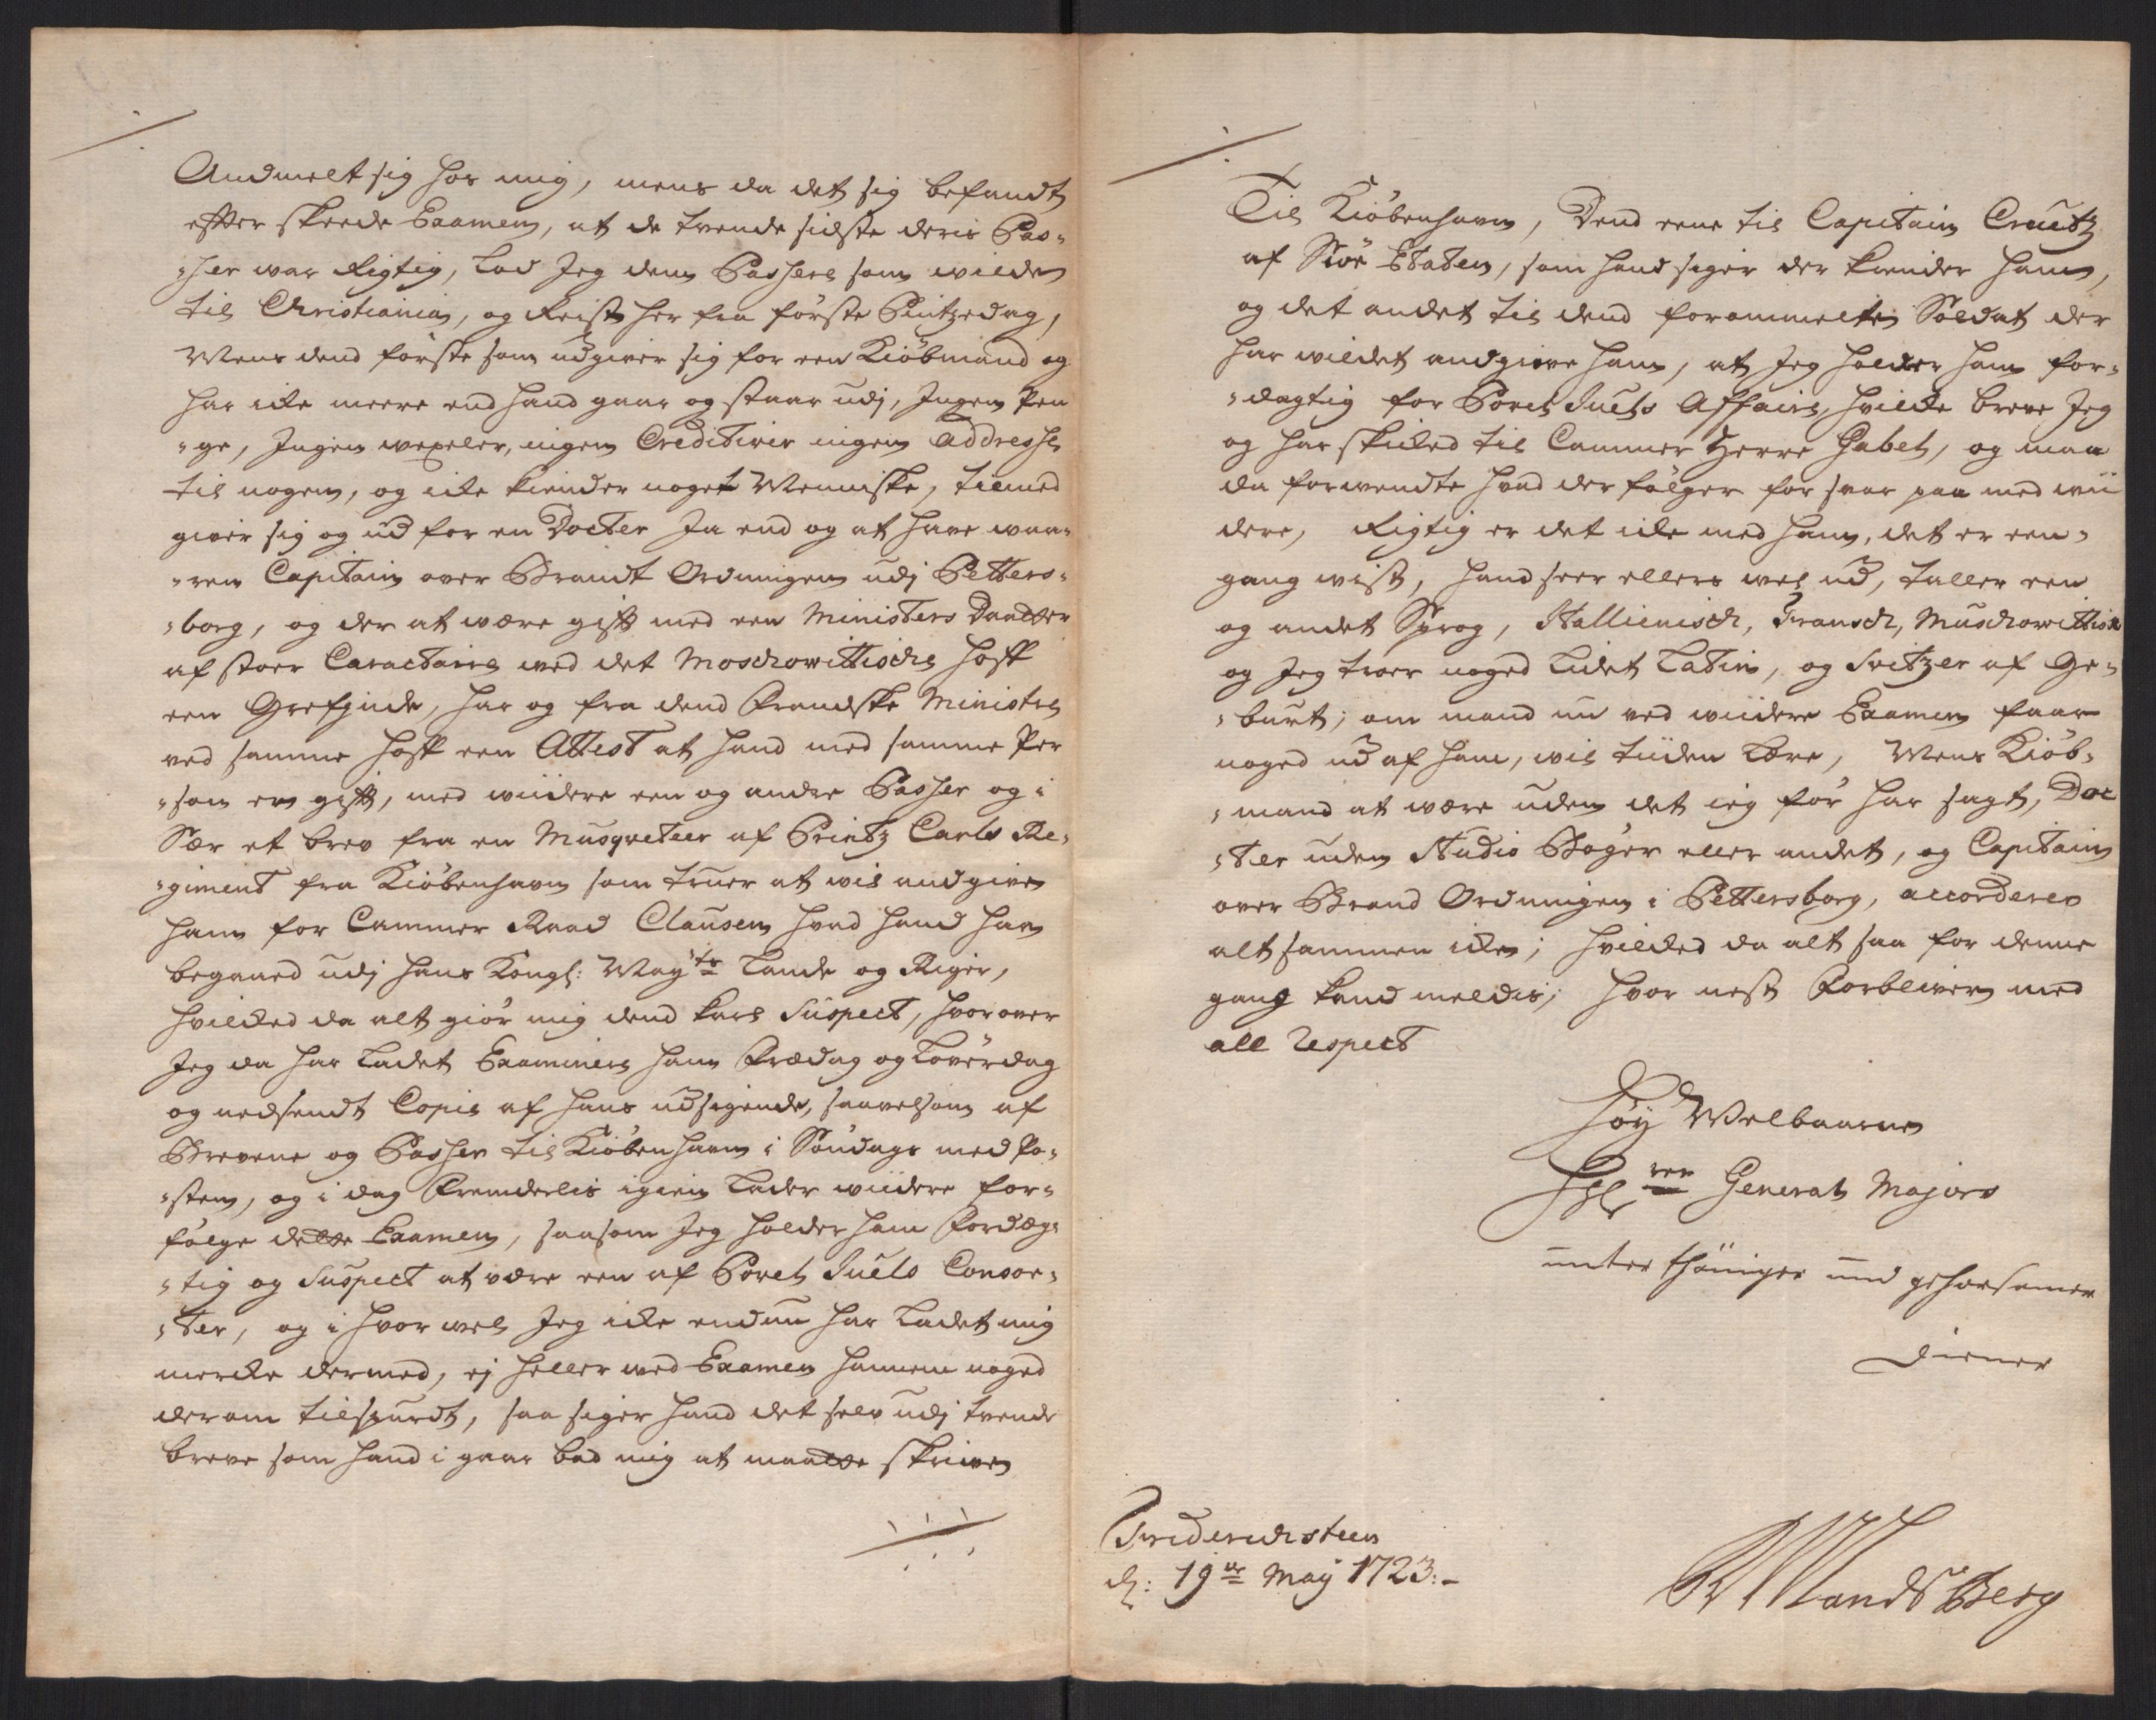 Andmelt sig hos mig, mens da det sig befandt
efter skeede Examen, at de trende sidste deris Pas-
-ser war Rigtig, lod Jeg dem Passere som wilde
til Christiania, og Reiste her fra förste Pintzedag,
Mens dend förste som udgiver sig for een Kiöbmand og
har icke meere end hand gaar og staar udj, Ingen Pen
-ge, Ingen wexeler, ingen Creditiver ingen addresse
til nogen, og icke kiender noget Menniske, tilmed
giver sig og ud for en Docter Ja end og at have waa-
-ren Capitain over Brandt Ordningen udj Petters-
-borg, og der at være gift med een Ministers Daatter
af stoer Caractaire wed det Moschowittische Hoff
een Grefginde, har og fra dend Frandske Ministre
ved samme Hoff een Attest at hand med samme Per
-son er gift, med wiidere een og andre Passer og i
Sær et brev fra en Musqveteer af Printz Carls Re-
-giment fra Kiöbenhavn som truer at wil andgive
ham for Cammer Raad Clausen hvad hand har
begaaed udj hans Kongl: May:ts Lande og Riger,
hvilcked da alt giör mig dend karl Suspect, hvorover
Jeg da har ladet Examinere ham Fredag og Löverdag
og nedsendt Copie af hans udsigende, saavelsom af
Brevene og Passer til Kiöbenhavn i Söndags med Po-
-sten, og i dag Fremdeelis igien lader wiidere for-
fölge dette Examen, saasom Jeg holder ham Fordæg-
-tig og Suspect at være een af Povel Juels Consor-
-ter, og i hvor wel Jeg icke endnu har ladet mig
mercke dermed, ej heller wed Examen hannem noged
derom tilspurdt, saa siger hand det selv udj trende
breve som hand i gaar bad mig at maatte skrive
Til Kiöbenhavn, Dend eene til Capitain Creutz
af Siöe Etaten, som hand siger der kiender ham,
og det andet til dend forommelte Soldat der
har wildet andgive ham, at Jeg holder ham for-
-dagtig for Povel Juels Affaire, hvilcke breve Jeg
og har skicked til Cammer Herre Gabel, og maa
da forvendte hvad der fölger for svar paa med wii
dere, Rigtig er det icke med ham, det er een-
gang wist, hand seer ellers wel ud, taller een
og andet Sprog, Itallienisch, Fransch, Muschowittisch
og Jeg troer noged lidet Latin, og Svitzer af Ge-
-burt; om mand nu ved wiidere Examen faar
noged ud af ham, wil tiiden lære, Mens Kiöb-
-mand at wære uden det ieg för har sagt, Doc
-ter uden Studio Böger eller andet, og Capitain
over Brand Ordningen i Pettersborg, accorderer
alt sammen icke; hvilcked da alt saa for denne
gang kand meldis; Hvor nest Forbliver med
all Respect
Höy Welbaarne
Hr General Majors
unter thäniger und gehorsamer
diener
Fridericksteen
d: 19de May 1723:-
Landsberg